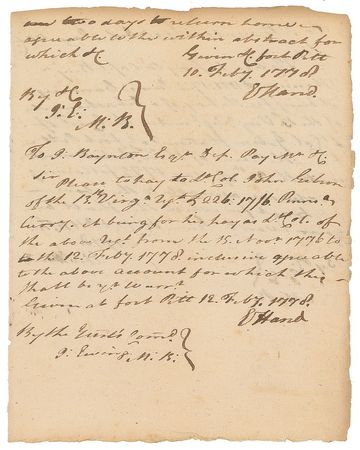 two days to return home
agreeable to the within abstract for
which &c
Given at fort Pitt
10. Feby. 1778
By &c
J: E:
M. B.
Ed Hand.
To J. Boynton Esqr. Dep. Pay Mr. &c
Sir
Please to pay to Lt Col. John Gibson
of the 13th Virga. Regt. £226. 17/6 Pennsa.
Curry. it being for his pay as Lt Col. of
the above Regt. from the 15. Novr. 1776 to
the 12. Feby. 1778 inclusive agreeable
to the above account for which this
shall be yr. Warrt.
Given at fort Pitt 12. Feby. 1778.
Ed Hand
By the Genl's Comd.
J: Ewing M. B.